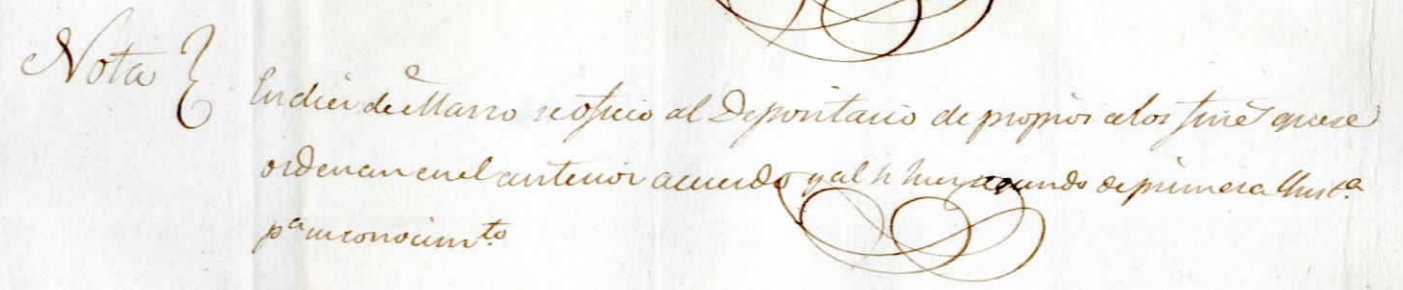 Nota
En diez de Marzo se oficio al Depositario de propios a los fines que se
ordenan en el anterior acuerdo y al Sr Juez segundo de primera Ynst.a
p.a su conocim.to